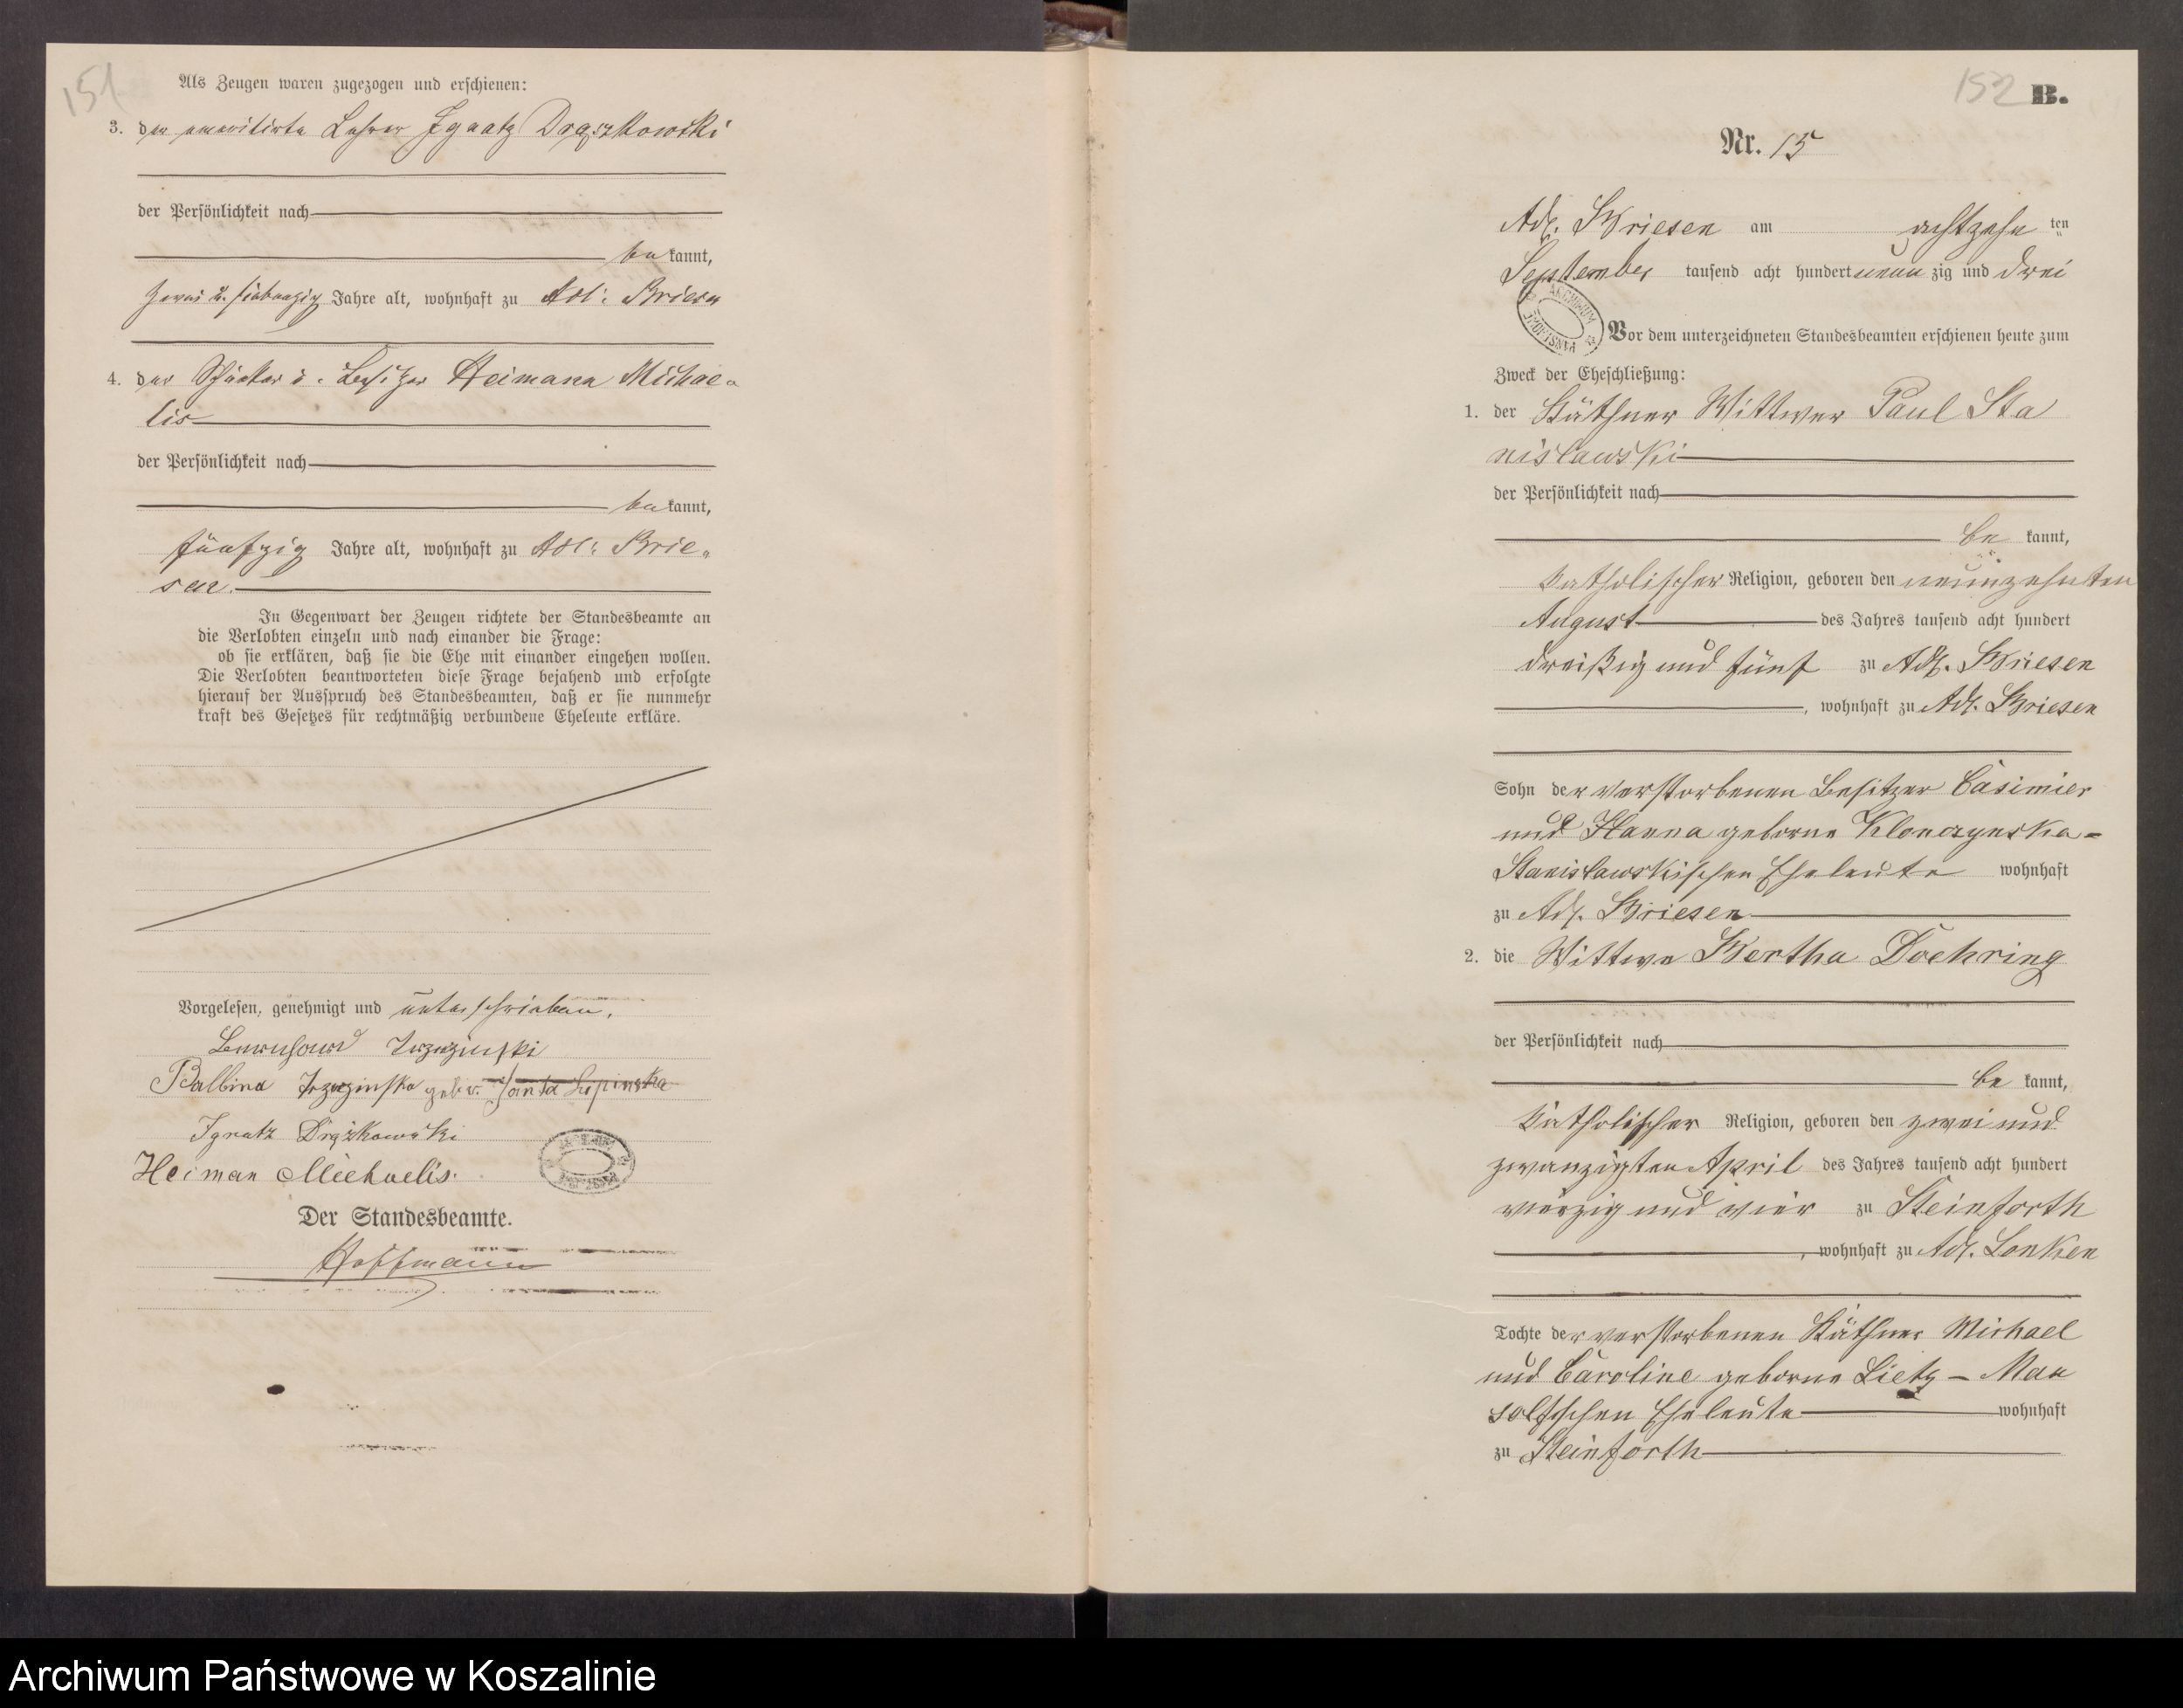 151
Als Zeugen waren zugezogen und erschienen:
3. der emeritirte Lehrer Ignatz Drązkowski
der Persönlichkeit nach
be kannt,
zwei u. siebenzig Jahre alt, wohnhaft zu Adl. Briesen
4. der Besitzer Heimann Michae-
lis
der Persönlichkeit nach
be kannt,
fünfzig Jahre alt, wohnhaft zu Adl. Brie-
sen.
In Gegenwart der Zeugen richtete der Standesbeamte an
die Verlobten einzeln und nach einander die Frage:
ob sie erklären, daß sie die Ehe mit einander eingehen wollen.
Die Verlobten beantworteten diese Frage bejahend und erfolgte
hierauf der Ausspruch des Standesbeamten, daß er sie nunmehr
kraft des Gesetzes für rechtmäßig verbundene Eheleute erkläre.
Vorgelesen, genehmigt und unterschrieben.
Balbina
Ignatz Drążkowski
Heiman Michaelis.
Der Standesbeamte.
Hoffmann
152 B.
Nr. 15
Adl. Briesen am achtzehn ten
September tausend acht hundert neun zig und drei
Vor dem unterzeichneten Standesbeamten erschienen heute zum
Zweck der Eheschließung:
1. der Käthner Wittwer Paul Sta
nislawski
der Persönlichkeit nach
be kannt,
katholischer Religion, geboren den neunzehnten
August des Jahres tausend acht hundert
dreißig und fünf zu Adl. Briesen
, wohnhaft zu Adl. Briesen
Sohn der verstorbenen Besitzer Casimier
und Hanna geborne Klonczynska-
Stanislawskischen Eheleute wohnhaft
zu Adl. Briesen
2. die Wittwe Bertha Doehring
der Persönlichkeit nach
be kannt,
katholischer Religion, geboren den zwei und
zwanzigten April des Jahres tausend acht hundert
vierzig und vier zu Steinforth
, wohnhaft zu Adl. Lonken
Tochte der verstorbenen Käthner Michael
und Caroline geborne Lietz - Man
solfschen Eheleute wohnhaft
zu Steinforth
Archiwum Państwowe w Koszalinie